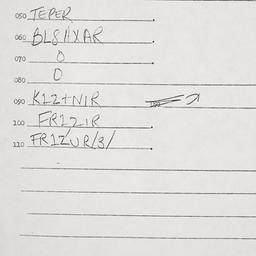 050 TEPER
060 BL8//XAR
070 0
080 0
090 K12+NIR
100 FR1Z1R
110 FR1ZUR/3/